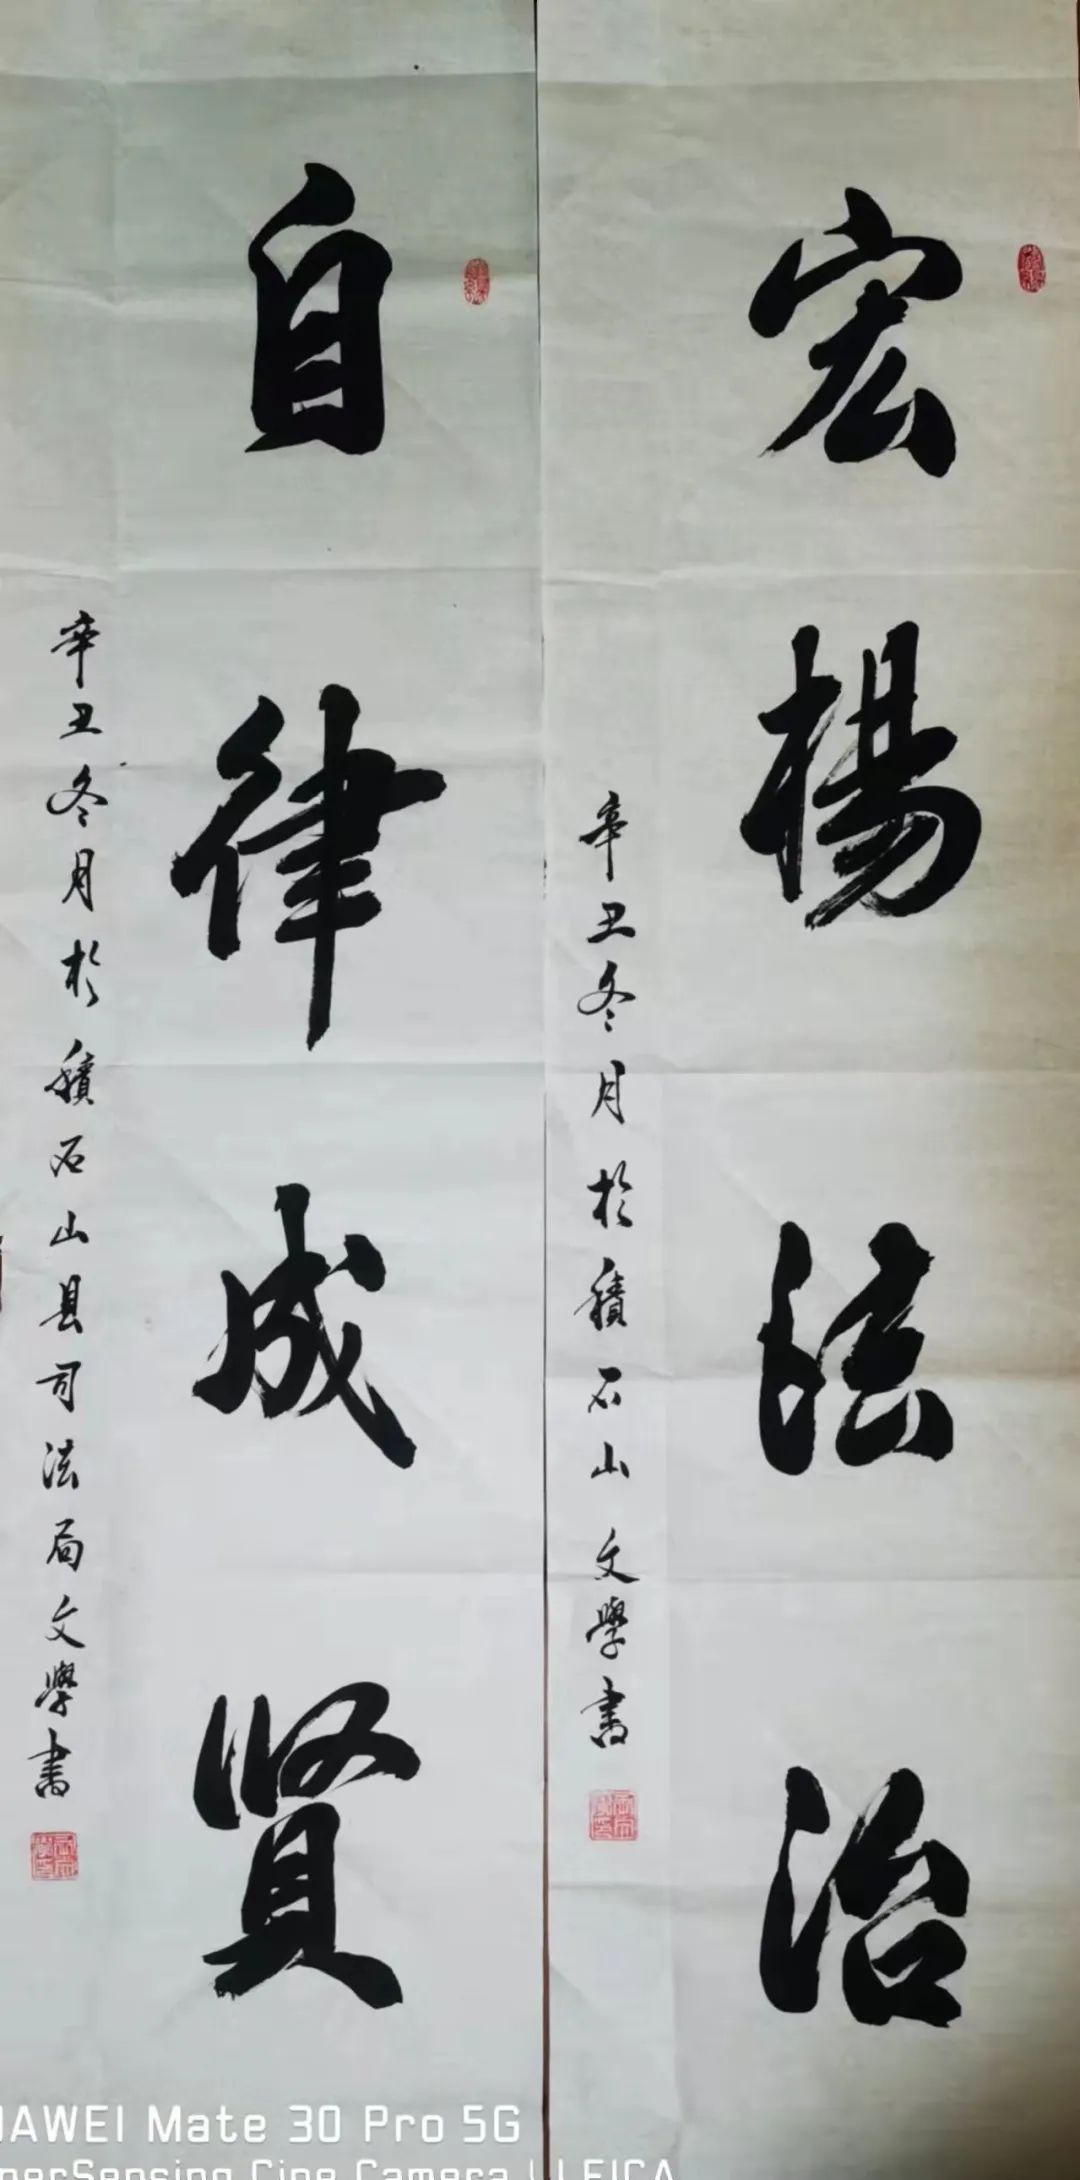 宏楊法治
辛丑冬月於積石山 文學書
自律成賢
辛丑冬月於積石山县司法局文學書
HUAWEI Mate 30 Pro 5G
SuperSensing Cine Camera | LEICA